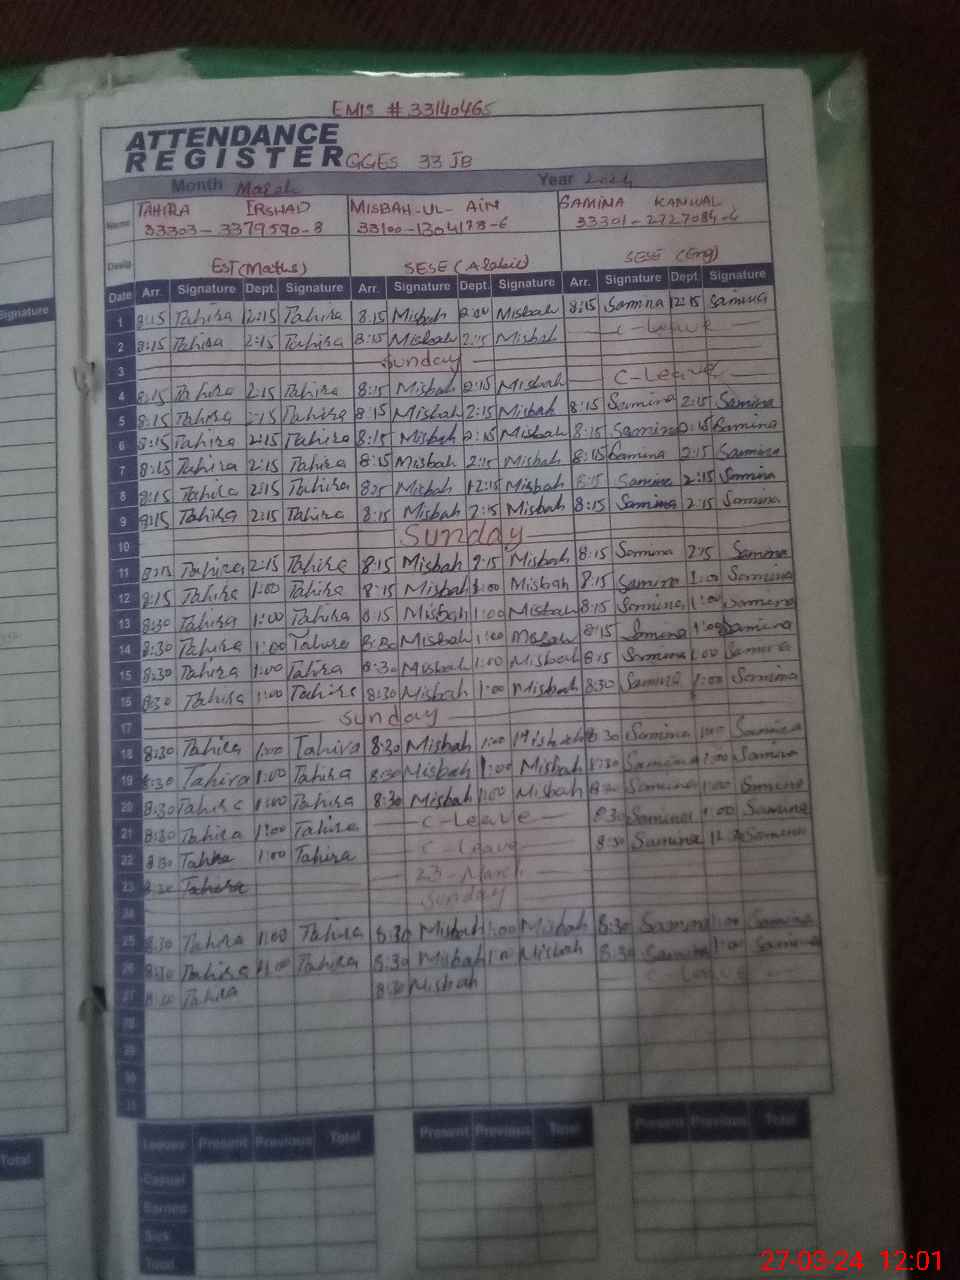 EMIS # 33140465
ATTENDANCE
REGISTER GGES 33 JB
Month March Year 2024
Name TAHIRA IRSHAD MISBAH-UL-AIN SAMINA KANWAL
33303-3379590-8 33100-1304178-6 33301-2727084-6
Desig EST (Maths) SESE (Arabic) SESE (Eng)
Signature Date Arr. Signature Dept. Signature Arr. Signature Dept. Signature Arr. Signature Dept. Signature
1 8:15 Tahira 12:15 Tahira 8:15 Misbah Misbah 8:15 Samina 12:15 Samina
2 8:15 Tahira 2:15 Tahira 8:15 Misbah 2:15 Misbah C-Leave
3 Sunday
4 8:15 Tahira 2:15 Tahira 8:15 Misbah 2:15 Misbah C-Leave
5 8:15 Tahira 2:15 Tahira 8:15 Misbah 2:15 Misbah 8:15 Samina 2:15 Samina
6 8:15 Tahira 2:15 Tahira 8:15 Misbah 2:15 Misbah 8:15 Samina 2:15 Samina
7 8:15 Tahira 2:15 Tahira 8:15 Misbah 2:15 Misbah 8:15 Samina 2:15 Samina
8 8:15 Tahira 2:15 Tahira 815 Misbah 12:15 Misbah 8:15 Samina 2:15 Samina
9 8:15 Tahira 2:15 Tahira 8:15 Misbah 2:15 Misbah 8:15 Samina 2:15 Samina
10 Sunday
11 8:15 Tahira 2:15 Tahira 8:15 Misbah 2:15 Misbah 8:15 Samina 2:15 Samina
12 8:15 Tahira 1:00 Tahira 8:15 Misbah 1:00 Misbah 8:15 Samina 1:00 Samina
13 8:30 Tahira 1:00 Tahira 8:15 Misbah 1:00 Misbah 8:15 Samina 1:00 Samina
14 8:30 Tahira 1:00 Tahira 8:30 Misbah 1:00 Misbah 8:15 Samina 1:00 Samina
15 8:30 Tahira 1:00 Tahira 8:30 Misbah 1:00 Misbah 8:15 Samina 1:00 Samina
16 8:30 Tahira 1:00 Tahira 8:30 Misbah 1:00 Misbah 8:30 Samina 1:00 Samina
17 Sunday
18 8:30 Tahira 1:00 Tahira 8:30 Misbah 1:00 Misbah 8:30 Samina 1:00 Samina
19 8:30 Tahira 1:00 Tahira 8:30 Misbah 1:00 Misbah 8:30 Samina 1:00 Samina
20 8:30 Tahira 1:00 Tahira 8:30 Misbah 1:00 Misbah 8:30 Samina 1:00 Samina
21 8:30 Tahira 1:00 Tahira C-Leave 8:30 Samina 1:00 Samina
22 8:30 Tahira 1:00 Tahira C-Leave 8:30 Samina Samina
23 8:30 Tahira 23-March
24 Sunday
25 8:30 Tahira 1:00 Tahira 8:30 Misbah 1:00 Misbah 8:30 Samina 1:00 Samina
26 8:30 Tahira 1:00 Tahira 8:30 Misbah 1:00 Misbah 8:30 Samina 1:00 Samina
27 8:30 Tahira 8:30 Misbah C-Leave
28
29
30
31
Total Leaves Present Previous Total Present Previous Total Present Previous Total
Casual
Earned
Sick
Total
27-03-24 12:01